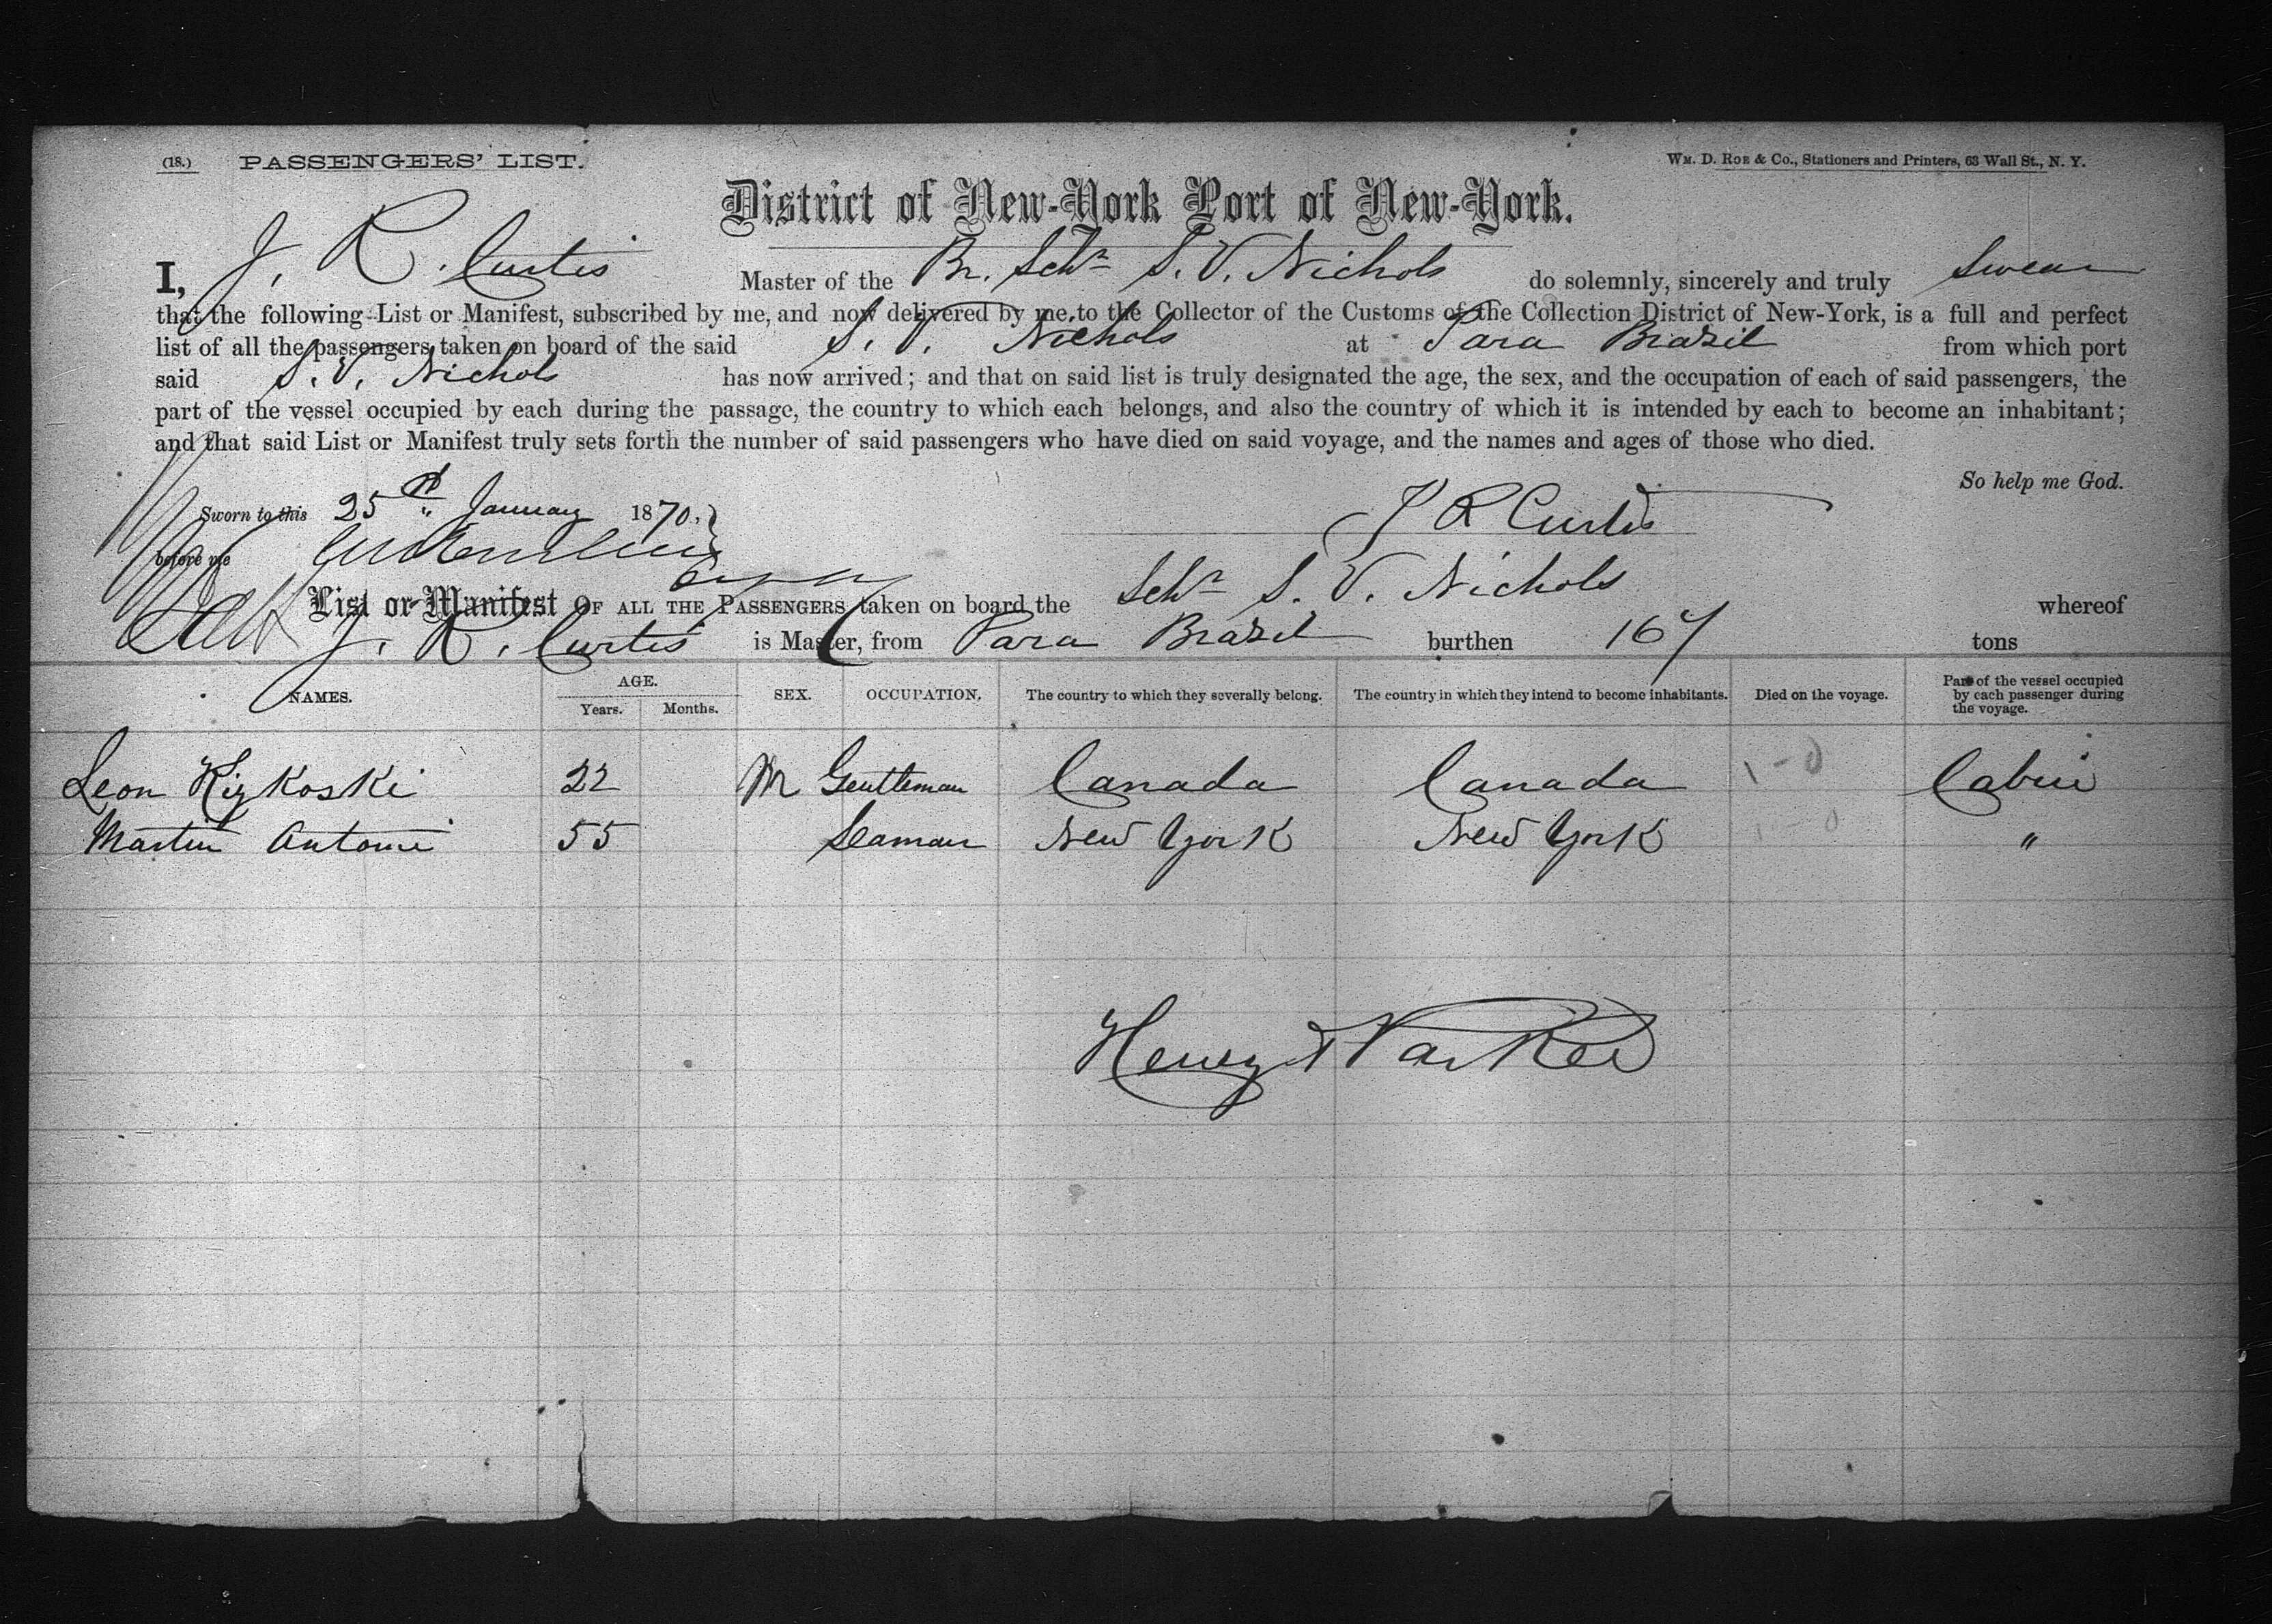 (18.) PASSENGERS' LIST. WM. D. ROE & Co., Stationers and Printers, 63 Wall St., N. Y.
District of New-York Port of New-York.
I, J. R. Curtis Master of the Br. Schr S. V. Nichols do solemnly, sincerely and truly swear
that the following List or Manifest, subscribed by me, and now delivered by me to the Collector of the Customs of the Collection District of New-York, is a full and perfect
list of all the passengers taken on board of the said S. V. Nichols at Para Brazil from which port
said S. V. Nichols has now arrived; and that on said list is truly designated the age, the sex, and the occupation of each of said passengers, the
part of the vessel occupied by each during the passage, the country to which each belongs, and also the country of which it is intended by each to become an inhabitant;
and that said List or Manifest truly sets forth the number of said passengers who have died on said voyage, and the names and ages of those who died.
So help me God.
Sworn to this 25 January 1870. J R Curtis
before me
List or Manifest OF ALL THE PASSENGERS taken on board the Schr S. V. Nichols whereof
J. R. Curtis is Master, from Para Brazil burthen 167 tons
NAMES. AGE. Years. Months. SEX. OCCUPATION. The country to which they severally belong. The country in which they intend to become inhabitants. Died on the voyage. Part of the vessel occupied by each passenger during the voyage.
Leon 22 M Gentleman Canada Canada 1-0 Cabin
Martin Antoni 55 Seaman New York New York 1-0 "
Henry Parker